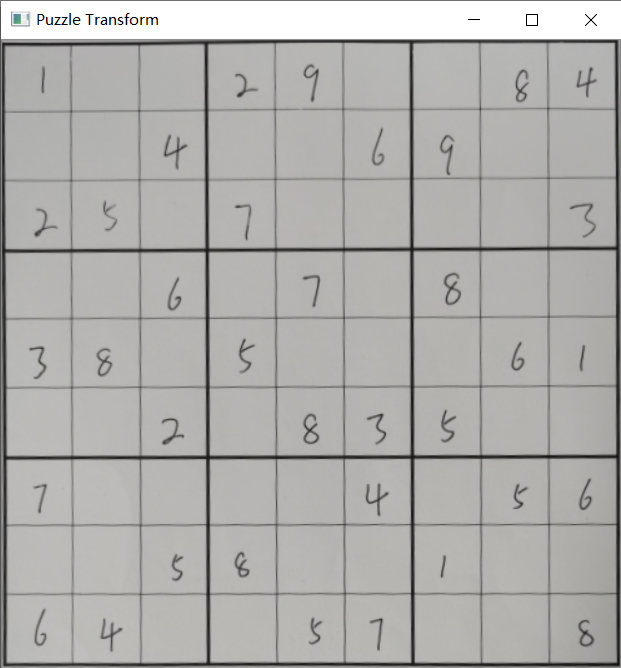 Puzzle Transform
1 2 9 8 4
4 6 9
2 5 7 3
6 7 8
3 8 5 6 1
2 8 3 5
7 4 5 6
5 8 1
6 4 5 7 8